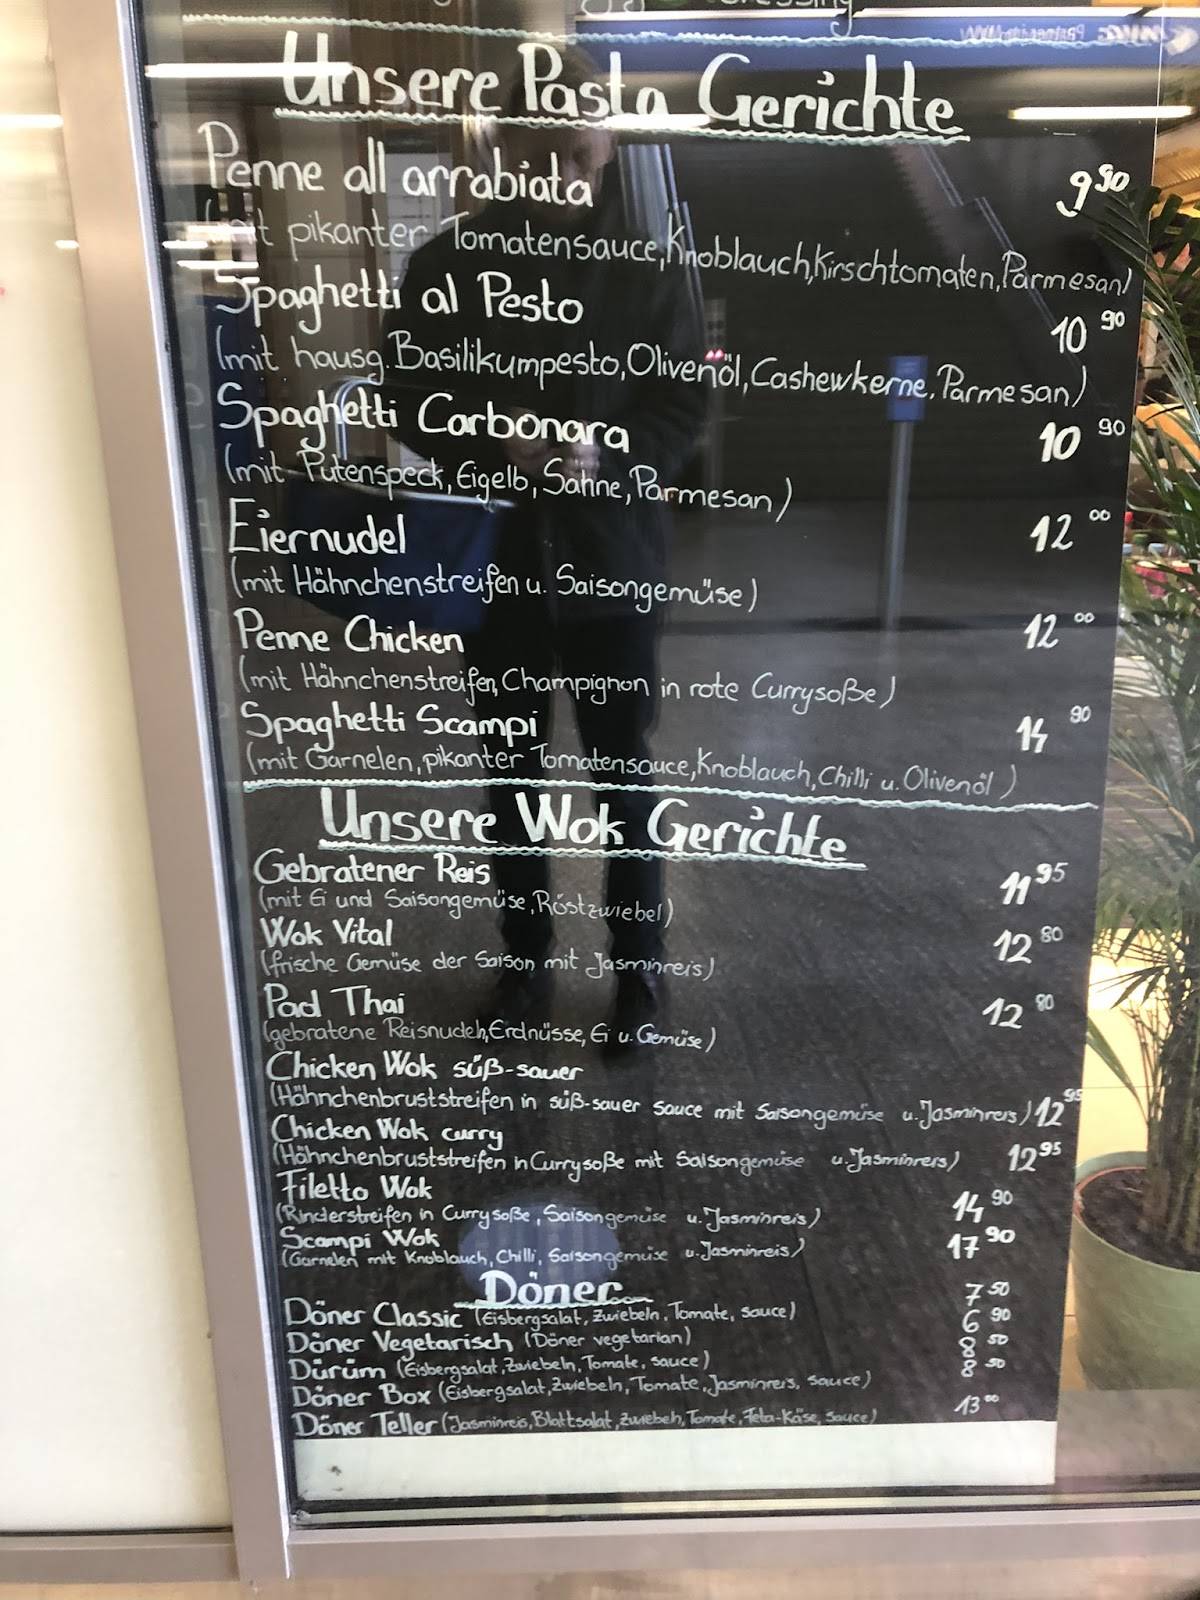 Unsere Pasta Gerichte
Penne all arrabiata 9.90
(mit pikanter Tomatensauce, Knoblauch, Kirschtomaten, Parmesan)
Spaghetti al Pesto 10.90
(mit hausg. Basilikumpesto, Olivenöl, Cashewkerne, Parmesan)
Spaghetti Carbonara 10.90
(mit Putenspeck, Eigelb, Sahne, Parmesan)
Eiernudel 12.00
(mit Hähnchenstreifen u. Saisongemüse)
Penne Chicken 12.00
(mit Hähnchenstreifen, Champignon in rote Currysoße)
Spaghetti Scampi 14.90
(mit Garnelen, pikanter Tomatensauce, Knoblauch, Chilli u. Olivenöl)
Unsere Wok Gerichte
Gebratener Reis 11.95
(mit Ei und Saisongemüse, Röstzwiebel)
Wok Vital 12.80
(frische Gemüse der Saison mit Jasminreis)
Pad Thai 12.80
(gebratene Reisnudeln, Erdnüsse, Ei u. Gemüse)
Chicken Wok süß-sauer
(Hähnchenbruststreifen in süß-sauer sauce mit Saisongemüse u. Jasminreis) 12.95
Chicken Wok curry
(Hähnchenbruststreifen in Currysoße mit Saisongemüse u. Jasminreis) 12.95
Filetto Wok
(Rinderstreifen in Currysoße, Saisongemüse u. Jasminreis) 14.90
Scampi Wok
(Garnelen mit Knoblauch, Chilli, Saisongemüse u. Jasminreis) 17.90
Döner
Döner Classic (Eisbergsalat, Zwiebeln, Tomate, sauce) 7.50
Döner Vegetarisch (Döner vegetarian) 6.90
Dürüm (Eisbergsalat, Zwiebeln, Tomate, sauce) 8.50
Döner Box (Eisbergsalat, Zwiebeln, Tomate, Jasminreis, sauce) 8.50
Döner Teller (Jasminreis, Blattsalat, Zwiebeln, Tomate, Feta-Käse, sauce) 13.00